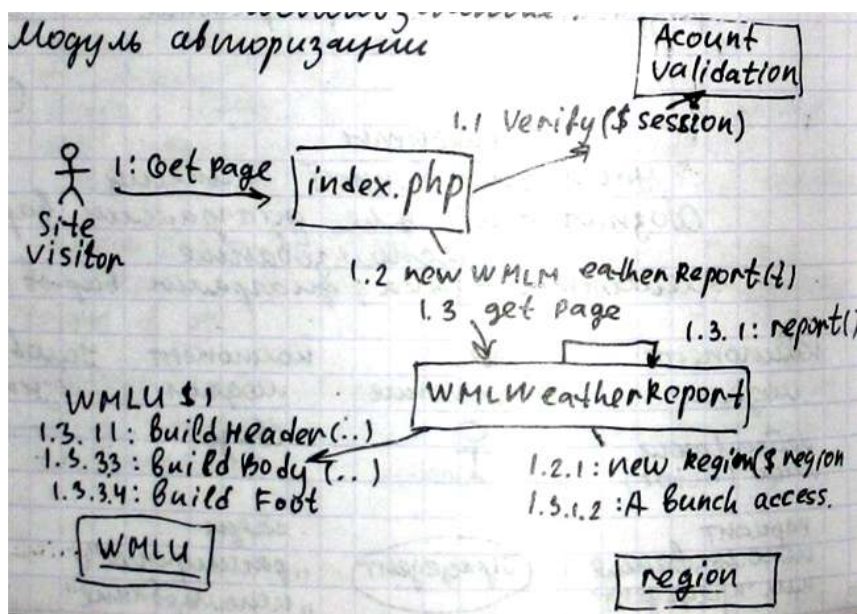 Модуль авторизации
Acount
validation
1.1 Verify($ session)
1: Get page
index.php
Site
visitor
1.2 new WMLM eatherReport(t)
1.3 get page
1.3.1: report()
WMLWeatherReport
WMLU $1
1.3.11: Build Header(..)
1.3.33: Build Body (..)
1.3.3.4: Build Foot
1.2.1: new Region($region
1.3.1.2: A bunch access.
WMLU
region